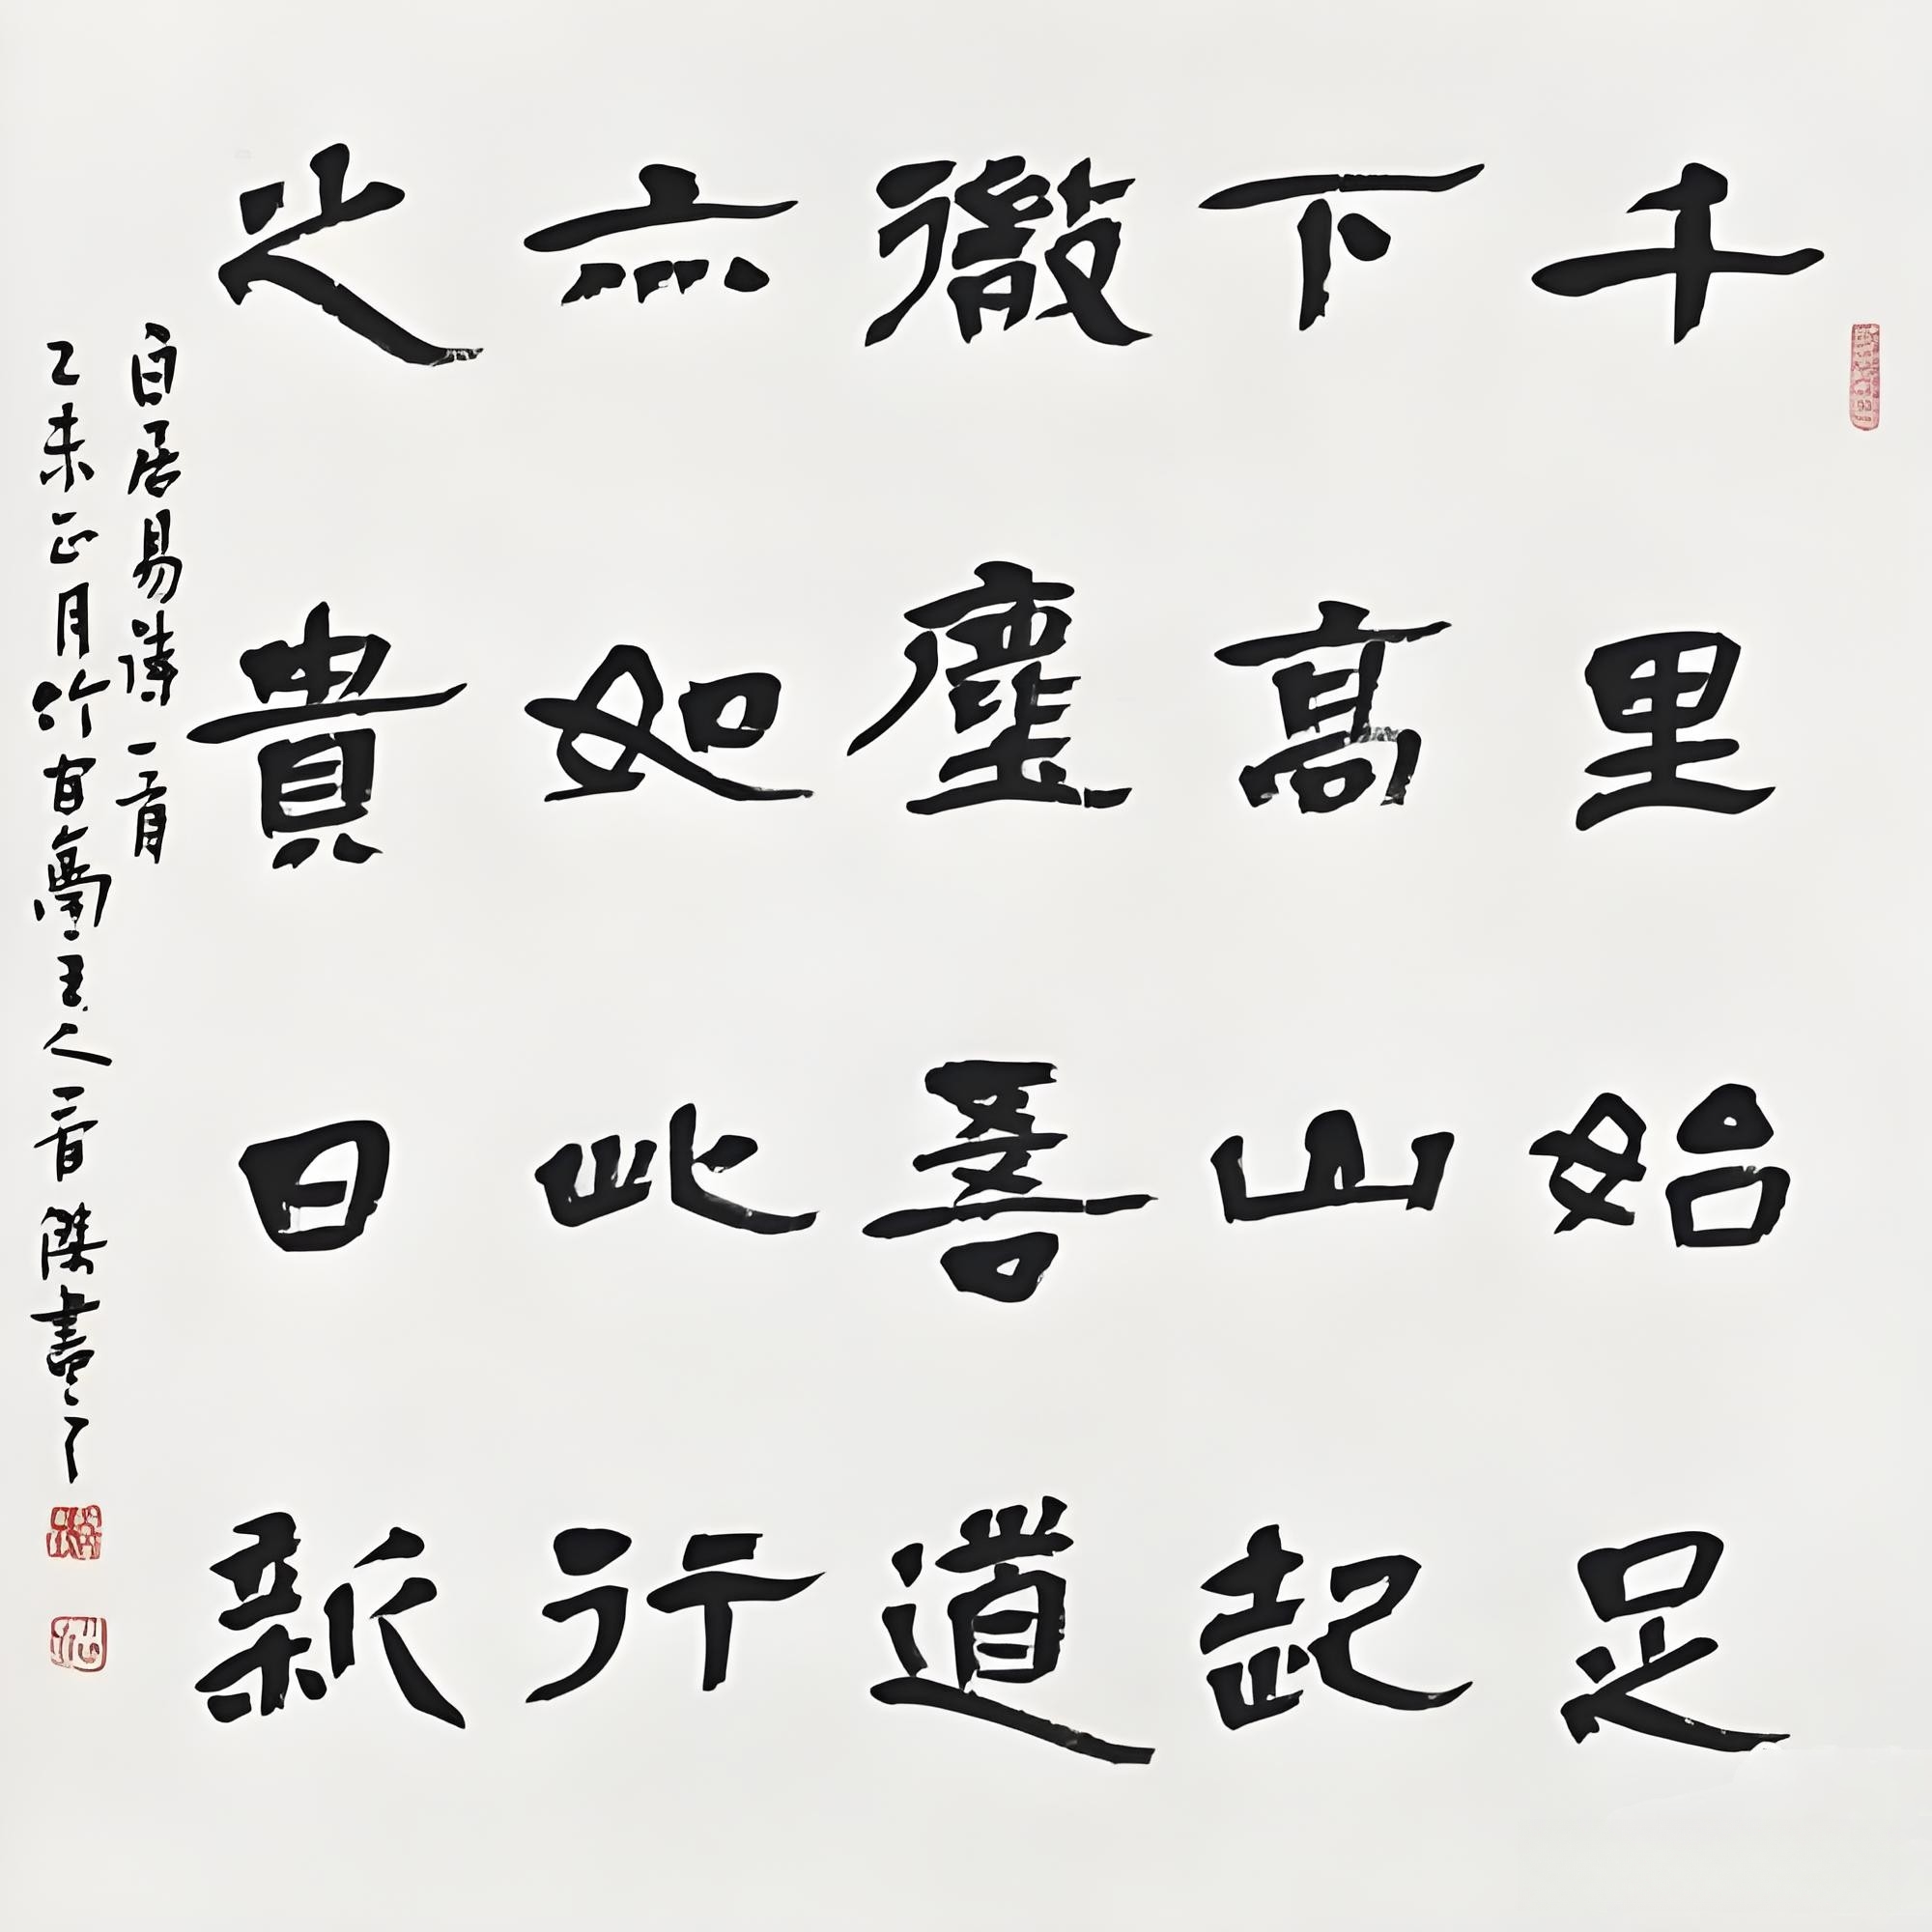 千里始足
下高山起
微塵善道
亦如此行
之貴日新
白居易詩一首
乙未正月竹百夢主人一首傑書了